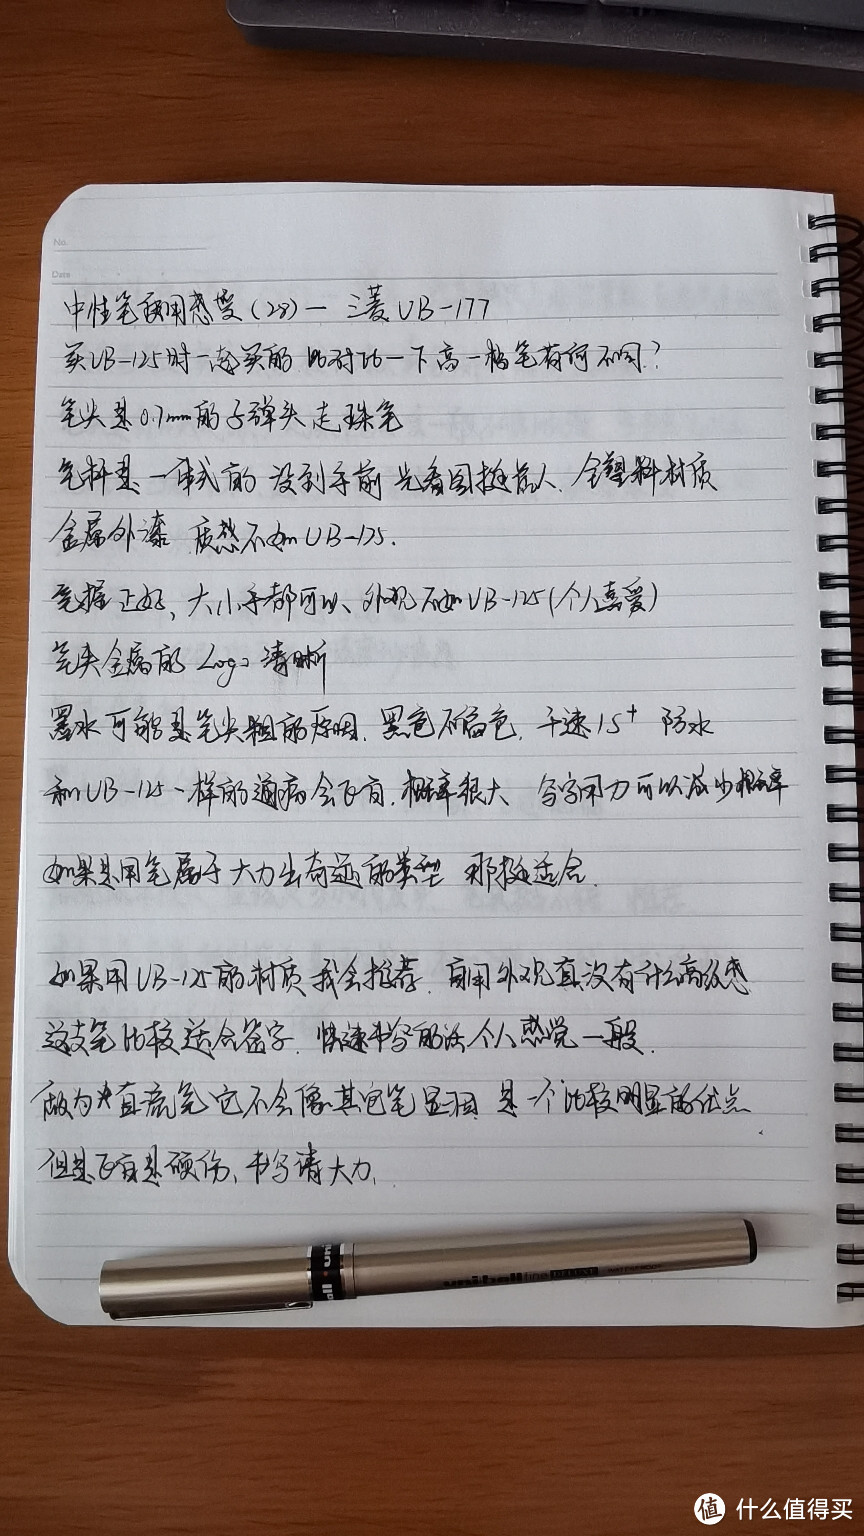 No.
Date
中性笔使用感受(28)— 三菱UB-177
买UB-125时一起买的 比对比一下高一档笔有何不同?
笔尖是0.7mm的子弹头走珠笔
笔杆是一体式的 没到手前 光看图挺惹人. 全塑料材质
金属外漆 质感不如UB-125.
笔握正好, 大小手都可以、外观不如UB-125(个人喜爱)
笔夹金属的 Logo清晰
墨水可能是笔尖粗的原因. 黑色不偏色. 干速15+ 防水
和UB-125一样的通病会飞白. 概率很大、写字用力可以减少概率
如果是用笔属于大力出奇迹的类型 那挺适合.
如果用UB-125的材质我会推荐. 自用外观真没有什么高级感
这支笔比较适合签字. 快速书写的话个人感觉一般.
做为直液笔它不会像其它笔显洇 是一个比较明显的优点
但是飞白是硬伤、书写请大力.
uni-ball fine DELUXE
值 什么值得买